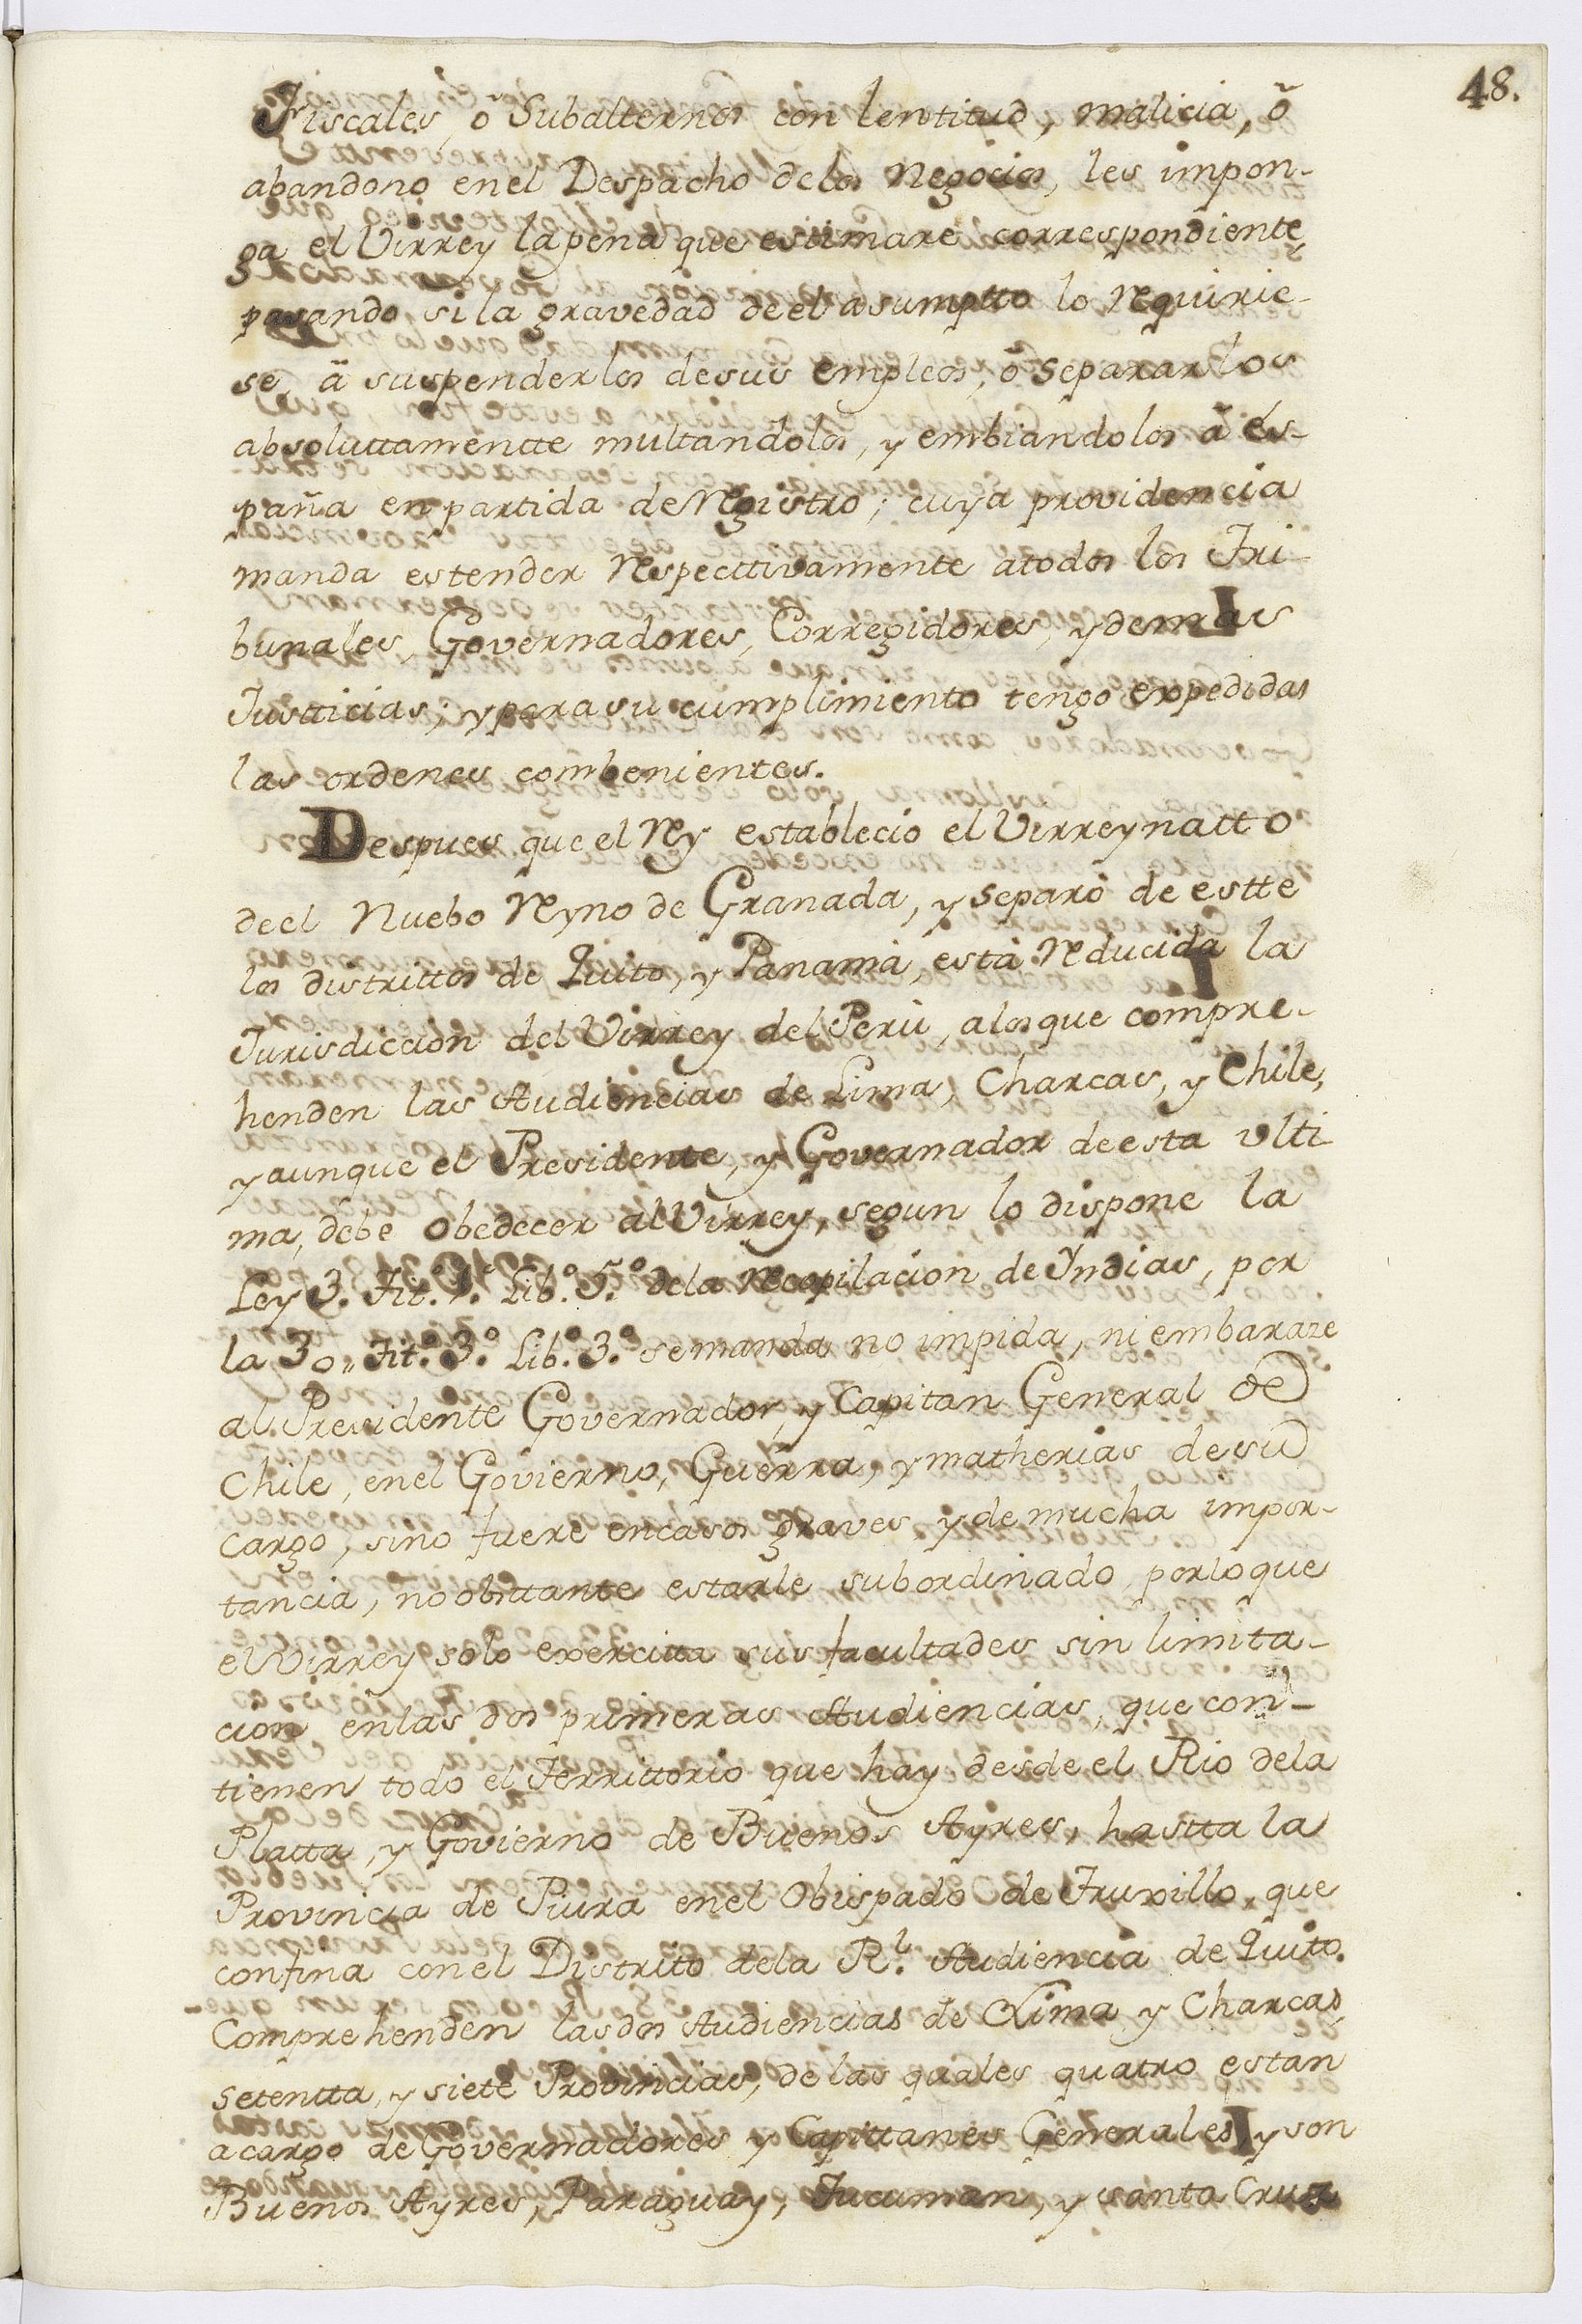 48.
Fiscales, õ Subalternos con lentitud, malicia, õ
abandono en el Despacho de los Negocios, les impon-
ga el Virrey la pena que estimare correspondiente,
pasando, si la gravedad de el asumptto lo requirie-
se, ã suspenderlos de sus empleos, õ separarlos
absoluttamentte multandolos, y embiandolos ã Es-
paña en partida de Registro; cuya providencia
manda estender respecttivamente a todos los Tri-
bunales, Governadores, Corregidores, y demas
Justticias; y para su cumplimiento tengo expedidas
las ordenes combenientes.
Despues que el Rey establecio el Virreynatto
de el Nuebo Reyno de Granada, y separò de estte
los distrittos de Quito, y Panamà, està reducida la
Jurisdiccion del Virrey del Perù, a los que compre-
henden las Audiencias de Lima, Charcas, y Chile,
y aunque el Presidente, y Governador de esta ulti-
ma, debe obedecer al Virrey, segun lo dispone la
Ley 3. Tit.º 1.º Lib.º 5.º de la Recopilacion de Yndias, por
la 30,, Tit.º 3.º Lib.º 3.º se manda no impida, ni embaraze
al Presidente Governador, y Capitan General de
Chile, en el Govierno, Guerra, y matherias de su
cargo, sino fuere en casos graves, y de mucha impor-
tancia, no obsttante estarle subordinado, por lo que
el Virrey solo exercitta sus facultades sin limita-
cion en las dos primeras Audiencias, que con-
tienen todo el Territtorio que hay desde el Rio de la
Platta, y Govierno de Buenos Ayres, hastta la
Provincia de Piura en el Obispado de Truxillo, que
confina con el Distrito de la R.l Audiencia de Quito.
Comprehenden las dos Audiencias de Lima y Charcas,
setentta, y siete Provincias, de las quales quatro estan
a cargo de Governadores y Capittanes Generales, y son
Buenos Ayres, Paraguay, Tucuman, y Santa Cruz